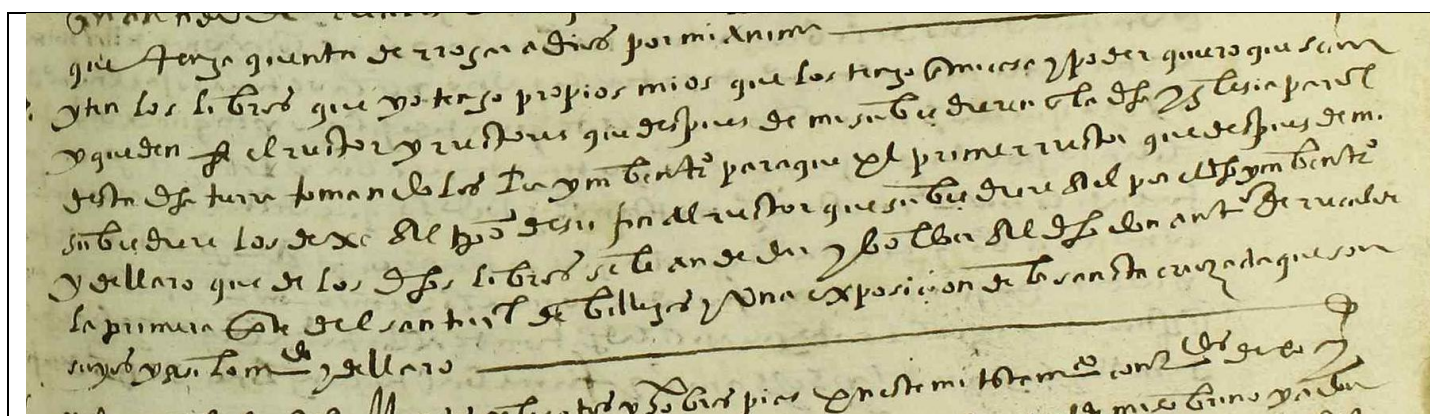 que tenga quenta de rrogar a dios por mi anima
yten los libros que yo tengo propios mios que los tengo en mi casa y poder quiero que sean
y queden para el rector y rectores que despues de mi subcedieren en la dha yglesia parrol
desta dha tierra tomandolos por ymbentro para que el primer rector que despues de mi
subcediere los dexe al tpo de su fin al rector que subcediere al por el dho ymbentro
y declaro que de los dhos libros se le an de dar y bolber al dho don anto de rucabde
la primera pte del santural de billegas y una exposicion de la sancta cruzada que son
suyos y asi lo mdo y declaro
obras pias en este mi testamto contdos